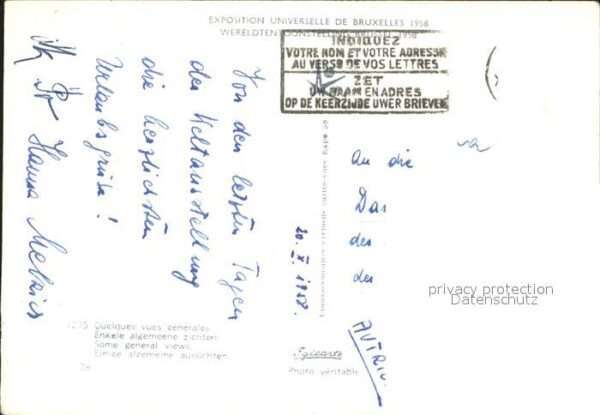 EXPOSITION UNIVERSELLE DE BRUXELLES 1958
WERELDTENTOONSTELLING BRUSSEL 1958
INDIQUEZ
VOTRE NOM ET VOTRE ADRESSE
AU VERSO DE VOS LETTRES
ZET
UW NAAM EN ADRES
OP DE KEERZIJDE UWER BRIEVEN
Von den letzten Tagen
der Weltausstellung
die herzlichsten
Urlaubsgrüße!
Hanna
20. X. 1958.
An die
Das
des
der
AUTRIC
privacy protection
Datenschutz
Quelques vues générales.
Enkele algemene zichten.
Some general views.
Einige allgemeine aussichten.
Photo véritable